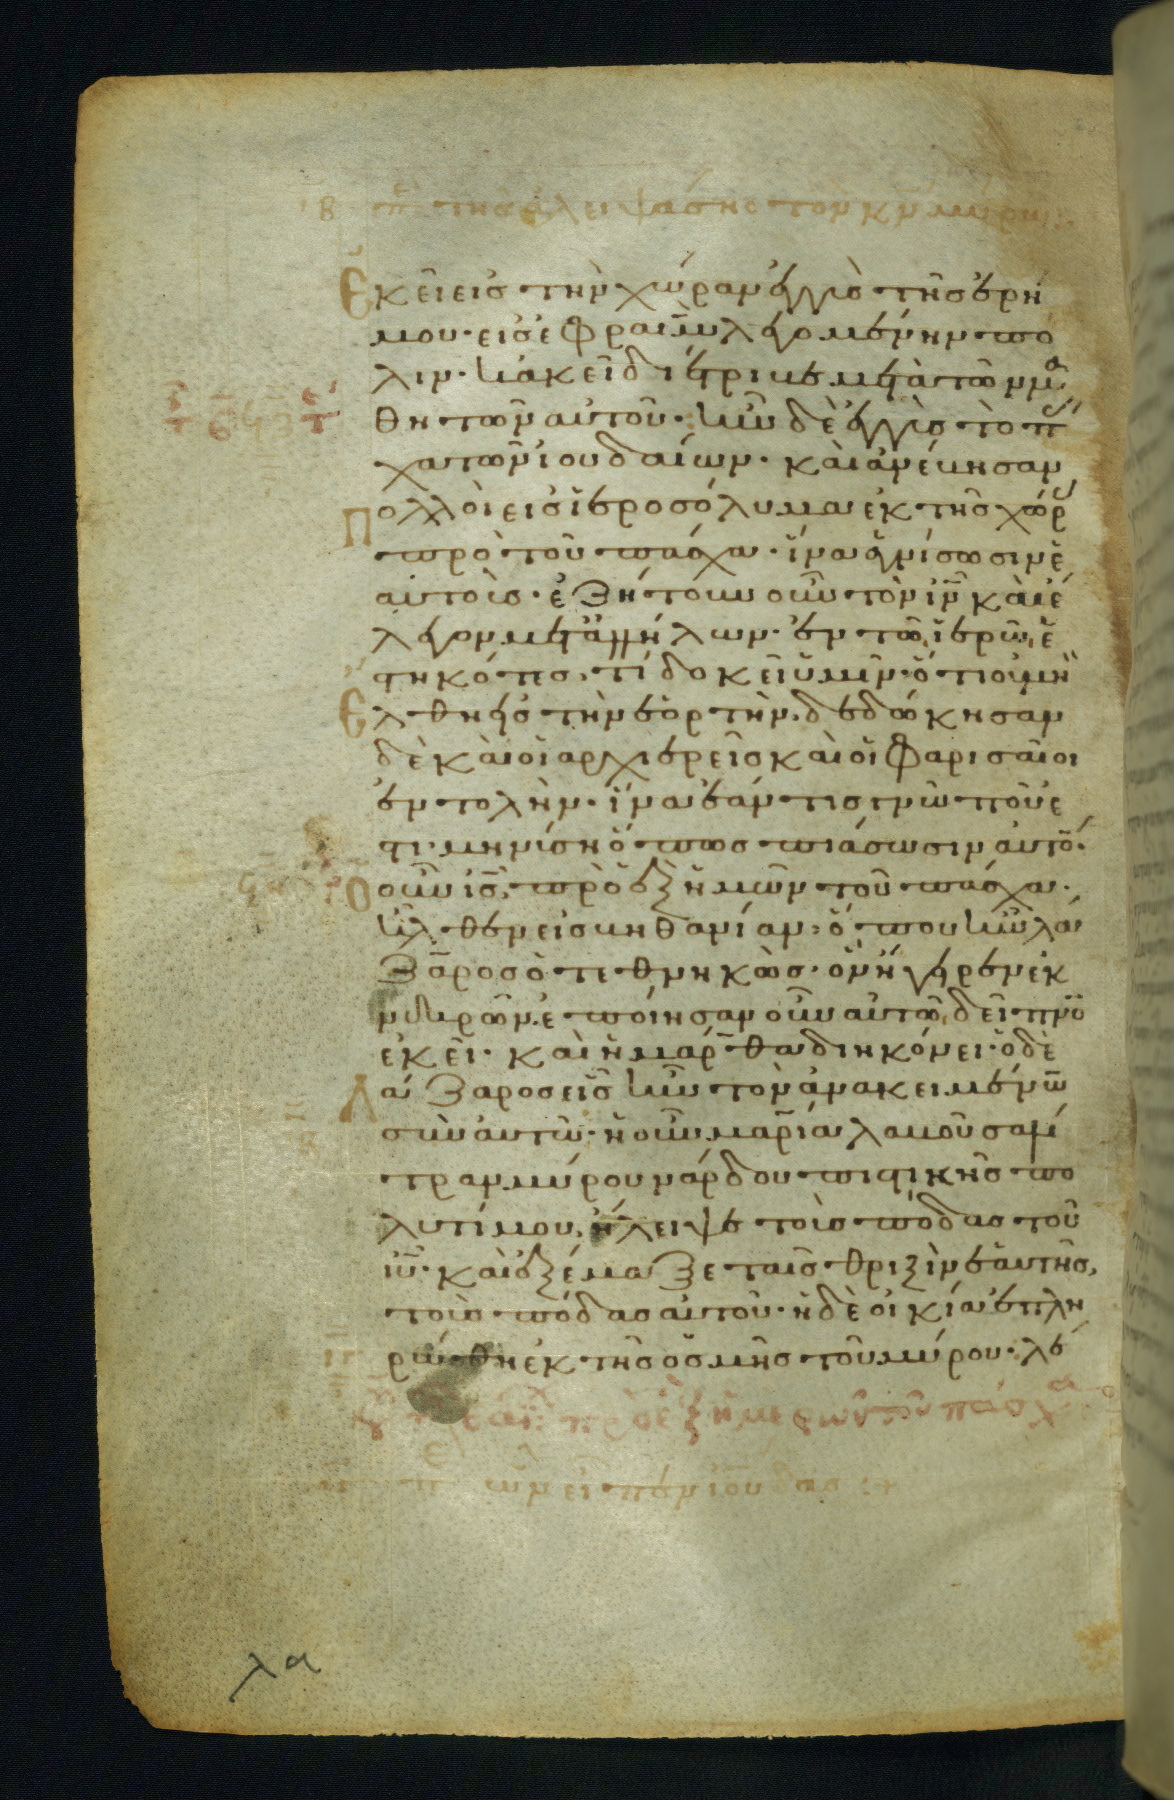 ιβ π τῆς ἀλειψάσης τὸν κν μύρω:
Ἐκεῖ εἰς τὴν χώραν ἐγγὺς τῆς ἐρή
μου· εἰς ἐφραῒμ λεγομένην πό
λιν· κἀκεῖ διέτριβε μετὰ τῶν μα
θητῶν αὐτοῦ· ἦν δὲ ἐγγὺς τὸ πά
σχα τῶν ἰουδαίων· καὶ ἀνέβησαν
πολλοὶ εἰς ἱεροσόλυμα ἐκ τῆς χώρ
πρὸ τοῦ πάσχα· ἵνα ἁγνίσωσιν ἑ
αυτοὺς· ἐζήτουν οὖν τὸν ιν καὶ ἔ
λεγον μετἀλλήλων· ἐν τῶ ἱερῶ ἑ
στηκότες, τί δοκεῖ ὑμῖν· ὅτι οὐ μὴ
ἔλθη εἰς τὴν ἑορτὴν· δεδώκησαν
δὲ καὶ οἱ ἀρχιερεῖς καὶ οἱ φαρισαῖοι
ἐντολὴν· ἵνα ἐάν τις γνῶ ποῦ ἐ
στι· μηνύση ὅπως πιάσωσιν αὐτό·
Ὁ οὖν ις, πρὸ ἓξ ἡμερῶν τοῦ πάσχα·
ἦλθεν εἰς βηθανίαν· ὅπου ἦν λά
ζαρος ὁ τεθνηκὼς· ὃν ἤγειρεν ἐκ
νεκρῶν· ἐποίησαν οὖν αὐτῶ δεῖπνο
ἐκεῖ· καὶ ἡ μάρθα διηκόνει· ὁ δὲ
Λάζαρος εἷς ἦν τῶν ἀνακειμένω
σὺν αὐτῶ· ἡ οὖν μαρία λαβοῦσα λί
τραν μύρου νάρδου πιστικῆς πο
λυτίμου, ἤλειψε τοὺς πόδας τοῦ
ιυ· καὶ ἐξέμαξε ταῖς θριξὶν ἑαυτῆς,
τοὺς πόδας αὐτοῦ· ἡ δὲ οἰκία ἐπλη
ρώθη ἐκ τῆς ὀσμῆς τοῦ μύρου· λέ
πρὸ ἓξ ἡμερῶν τοῦ πάσχα
π ὧν εἶπεν ἰούδας :+
λα